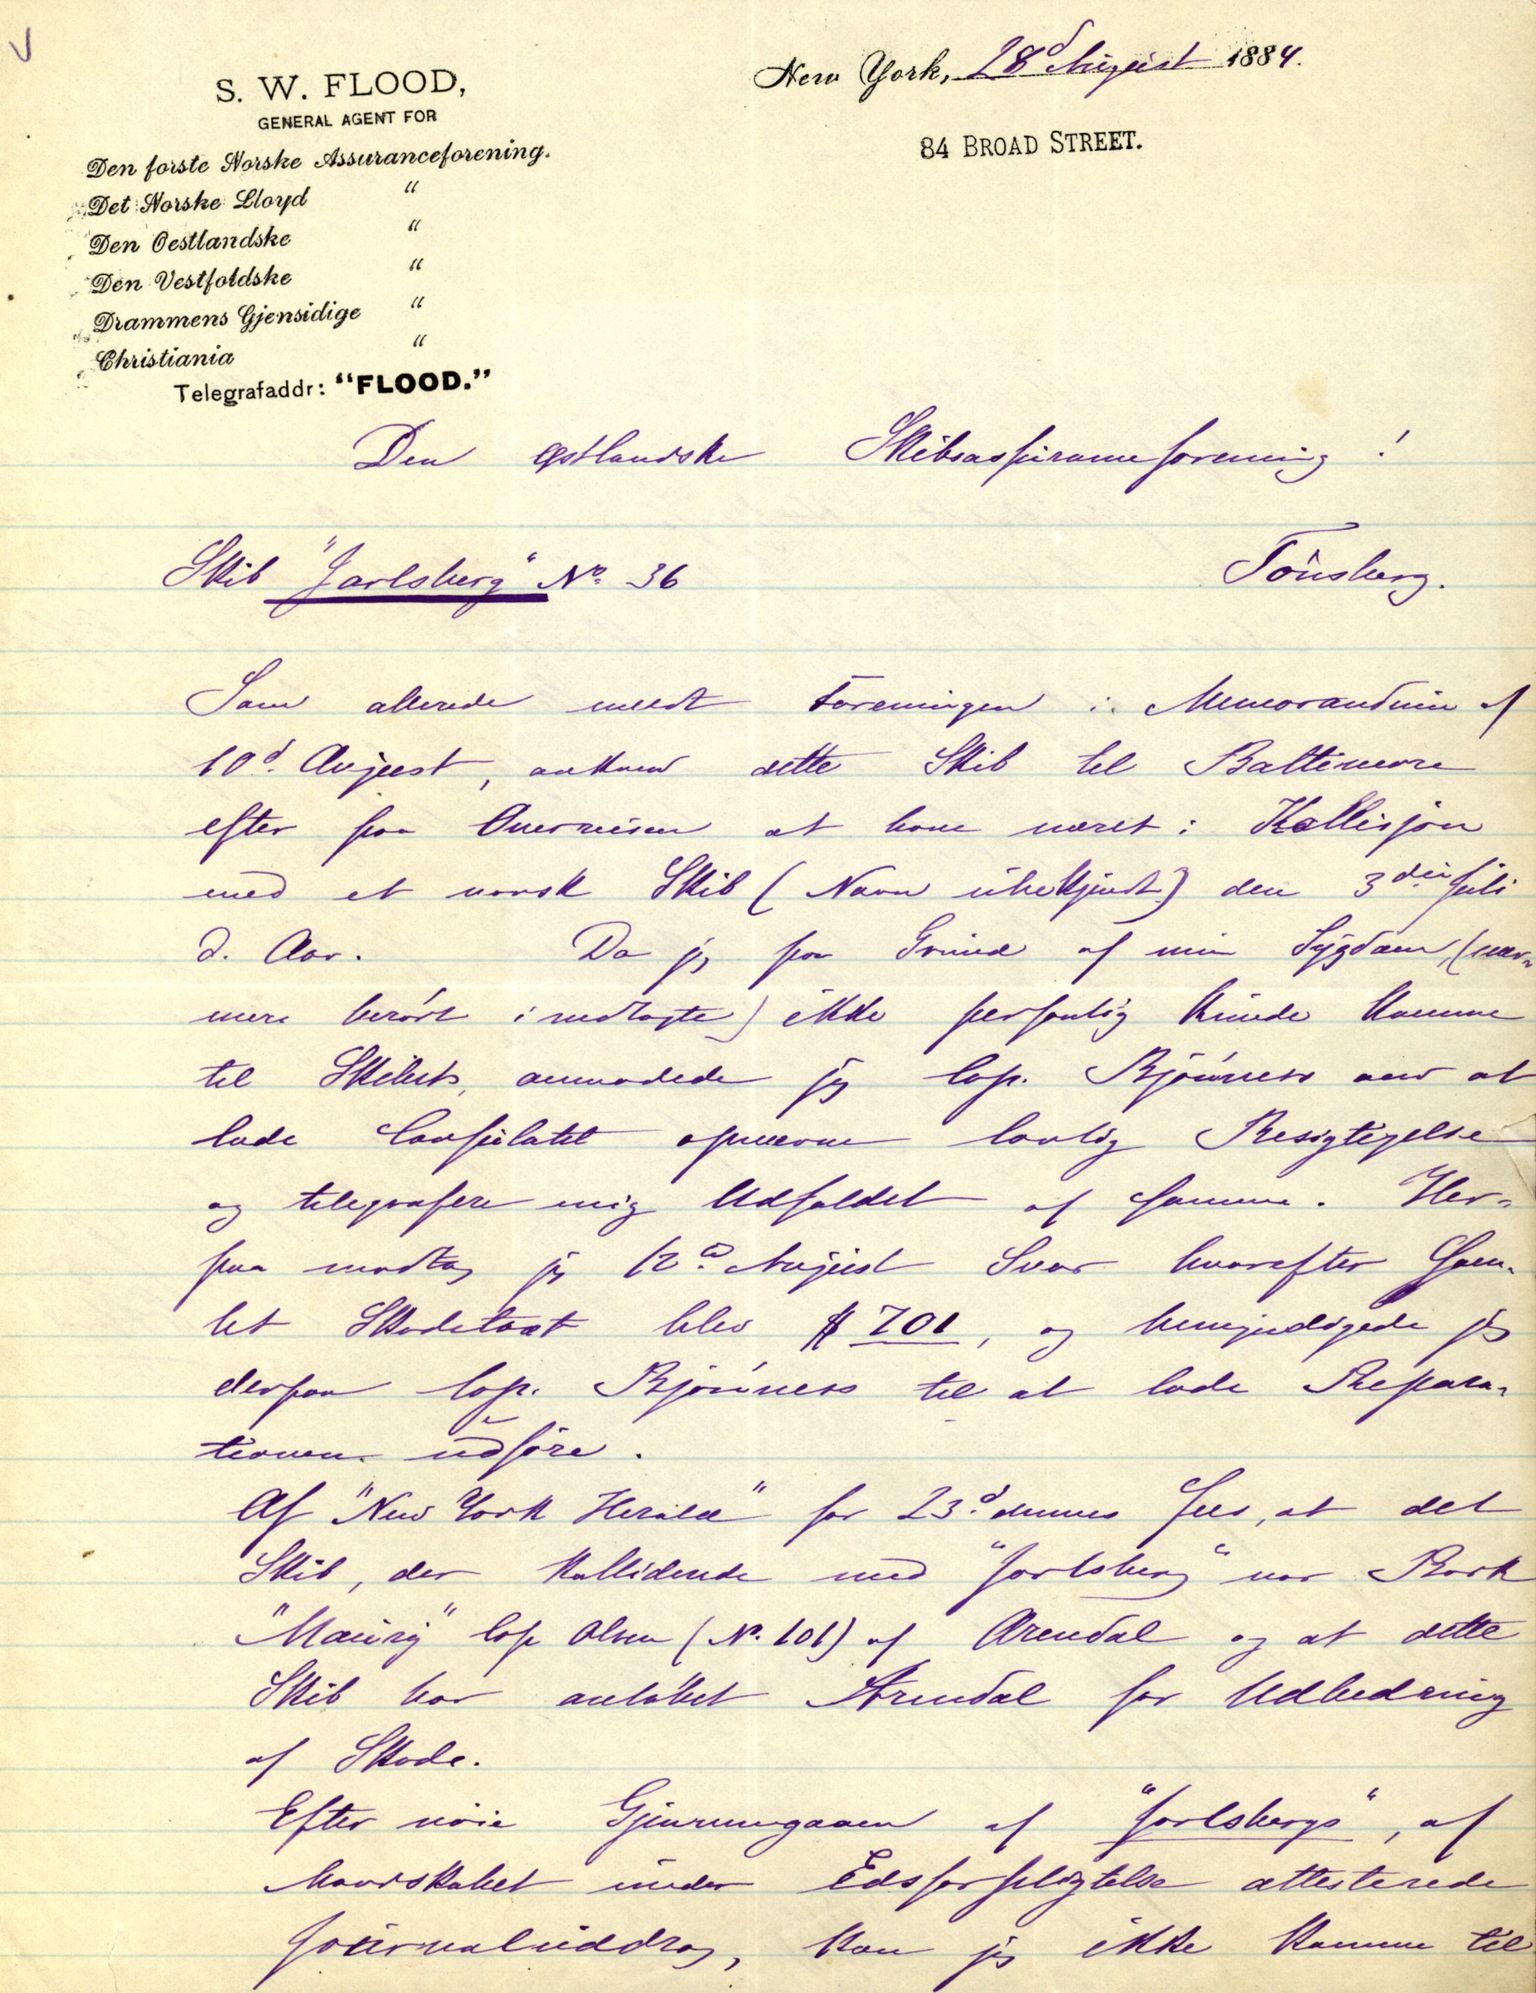 S. W. FLOOD,
GENERAL AGENT FOR
Den forste Norske Assuranceforening.
Det Norske Lloyd "
Den Oestlandske "
Den Vestfoldske "
Drammens Gjensidige "
Christiania "
Telegrafaddr: "FLOOD."
New York, 28d August 1884.
84 BROAD STREET.
Den Østlandske Skibsassuranceforening!
Skib "Jarlsberg" No. 36
Tönsberg.
Som allerede meldt Foreningen i Memorandum af
10d. August, ankom dette Skib til Baltimore
efter paa Overreisen at have været i Kollisjon
med et norsk Skib (Navn ubekjendt) den 3die Juli
d. Aar. Da jeg paa Grund af min Sygdom, (nær-
mere berört i medlagte) ikke personlig kunde komme
til Skibets, anmodede jeg Cap. Bjönness om at
lade Consulatet opnævne lovlig Besigtigelse
og telegrafere mig Udfaldet af samme. Her-
paa modtog jeg 12d. August Svar hvorefter Sam-
let Skadetaxt blev $ 701, og bemyndigede jeg
derpaa Cap. Bjönness til at lade Repara-
tionen udföre.
Af "New York Herald" for 23d. dennes sees, at det
Skib, der kolliderede med "Jarlsberg" var Bark
"Maury" Cap Olsen (No. 101) af Arendal og at dette
Skib har anlöbet Arendal for Udbedring
af Skade.
Efter nöie Gjennemgaaen af "Jarlsbergs", af
Mandskabet under Edsforpligtelse attesterede
Journaluddrag, kan jeg ikke komme til